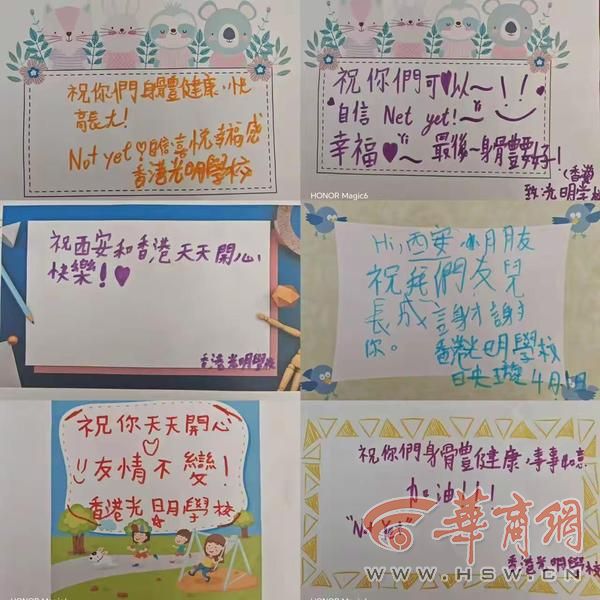 祝你們身體健康,快
高長大!
Not yet ♡自信喜悅幸福感
香港光明學校
祝你們可♥以~
自信 Net yet!~
幸福♥~ 最後~身體要好!
HONOR Magic6
祝西安和香港天天開心、
快樂!♥
香港光明學校
Hi,西安小月友
祝我們友兒
長成 謝謝
你。 香港光明學校
4月
祝你天天開心
友情不變!
香港光明學校
HONOR Magic6
祝你們身體健康,事事如意,
加油!!!
"Not Yet"
香港光明學校
華商網
WWW.HSW.CN